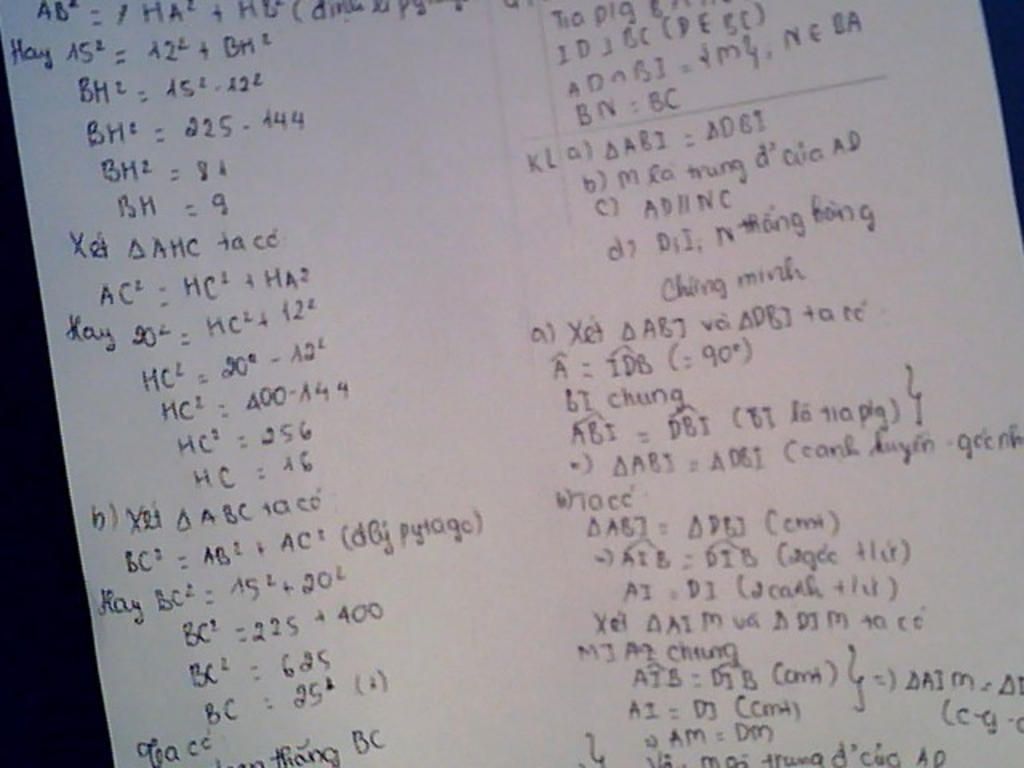 AB² = HA² + HB² (định lí pytago
Hay 15² = 12² + BH²
BH² = 15² - 12²
BH² = 225 - 144
BH² = 81
BH = 9
Xét ΔAHC ta có
AC² = HC² + HA²
Hay 20² = HC² + 12²
HC² = 20² - 12²
HC² = 400 - 144
HC² = 256
HC = 16
b) Xét ΔABC ta có
BC² = AB² + AC² (đlý pytago)
Hay BC² = 15² + 20²
BC² = 225 + 400
BC² = 625
BC = 25²
Ta có
thẳng BC
Tia p/g
ID ⊥ BC (D ∈ BC)
AD ∩ BI = {M}, N ∈ BA
BN = BC
KL a) ΔABI = ΔDBI
b) M là trung đ' của AD
c) AD // NC
d) D, I, N thẳng hàng
Chứng minh
a) Xét ΔABI và ΔDBI ta có
Â = IDB (= 90°)
BI chung
ABI = DBI (BI là tia p/g) }
=) ΔABI = ΔDBI (cạnh huyền - góc nh
b) Ta có
ΔABI = ΔDBI (cmt)
=) AIB = DIB (2 góc t/ứ)
AI = DI (2 cạnh t/ứ)
Xét ΔAIM và ΔDIM ta có
chung
AIB = DIB (cmt) } =) ΔAIM = ΔD
AI = DI (cmt) (c-g-c
=) AM = DM
Vậy M là trung đ' của AD